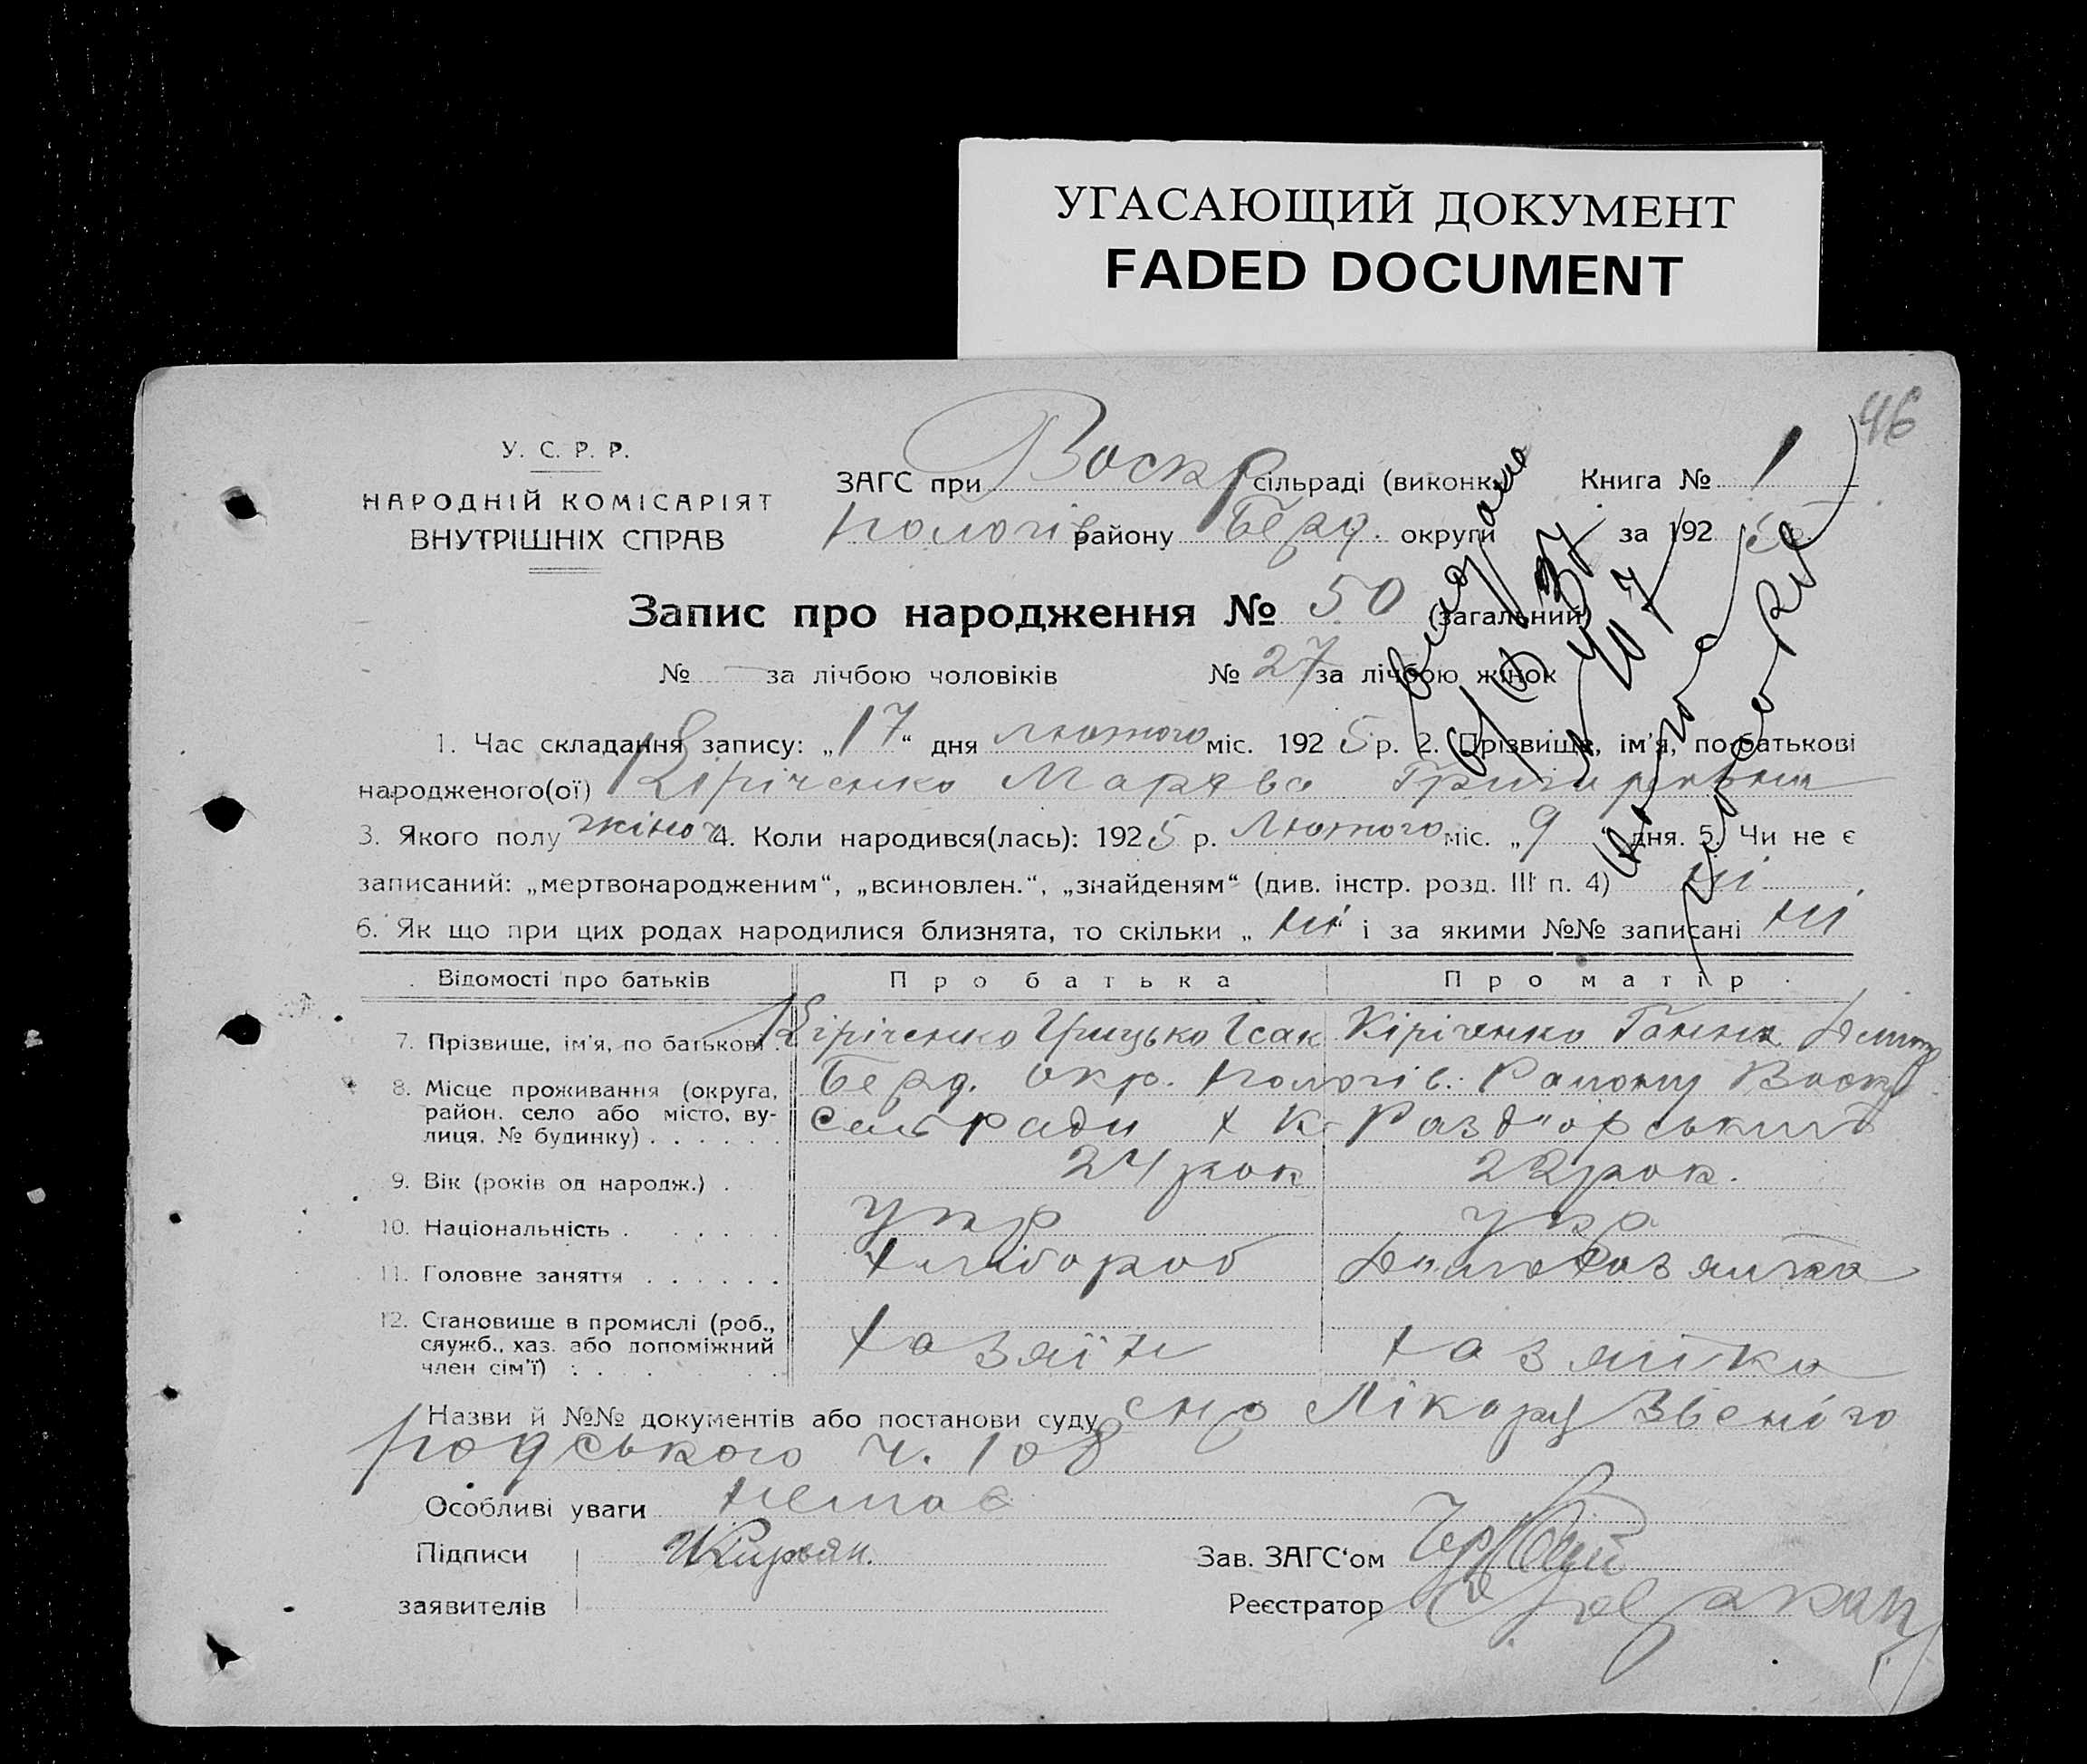 УГАСАЮЩИЙ ДОКУМЕНТ
FADED DOCUMENT
46
У. С. Р. Р.
НАРОДНІЙ КОМІСАРІЯТ
ВНУТРІШНІХ СПРАВ
ЗАГС при Воскр сільраді (виконк. Книга № 1
Пологів району Берд. округи за 192 5 р.
Запис про народження № 50 (загальний)
№ — за лічбою чоловіків № 27 за лічбою жінок
1. Час складання запису: „17“ дня лютого міс. 1925 р. 2. Прізвище, ім'я, по батькові
народженого(ої) Кіріченко Марява
3. Якого полу жіноч 4. Коли народився(лась): 1925 р. Лютого міс. „9“ дня. 5. Чи не є
записаний: „мертвонародженим“, „всиновлен.“, „знайденям“ (див. інстр. розд. III п. 4) ні
6. Як що при цих родах народилися близнята, то скільки „ні“ і за якими №№ записані ні
Відомості про батьків Про батька Про матір
7. Прізвище, ім'я, по батькові . Кіріченко Грицько Ісак Кіріченко Ганна
8. Місце проживання (округа, Берд. окр. Пологів. Району Воскр
район, село або місто, ву- Сельради х К-Раздорський
лиця, № будинку) . . . . . .
9. Вік (років од народж.) . 24 рок 22 рок.
10. Національність . . . . . . укр укр
11. Головне заняття . . . . . . хлібороб Домохазяйка
12. Становище в промислі (роб., хазяїн хазяйка
служб., хаз. або допоміжний
член сім'ї) : . . . .
Назви й №№ документів або постанови суду Лікару Звеніго
родського ч. 108
Особливі уваги немає
Підписи Зав. ЗАГС'ом
заявителів Реєстратор